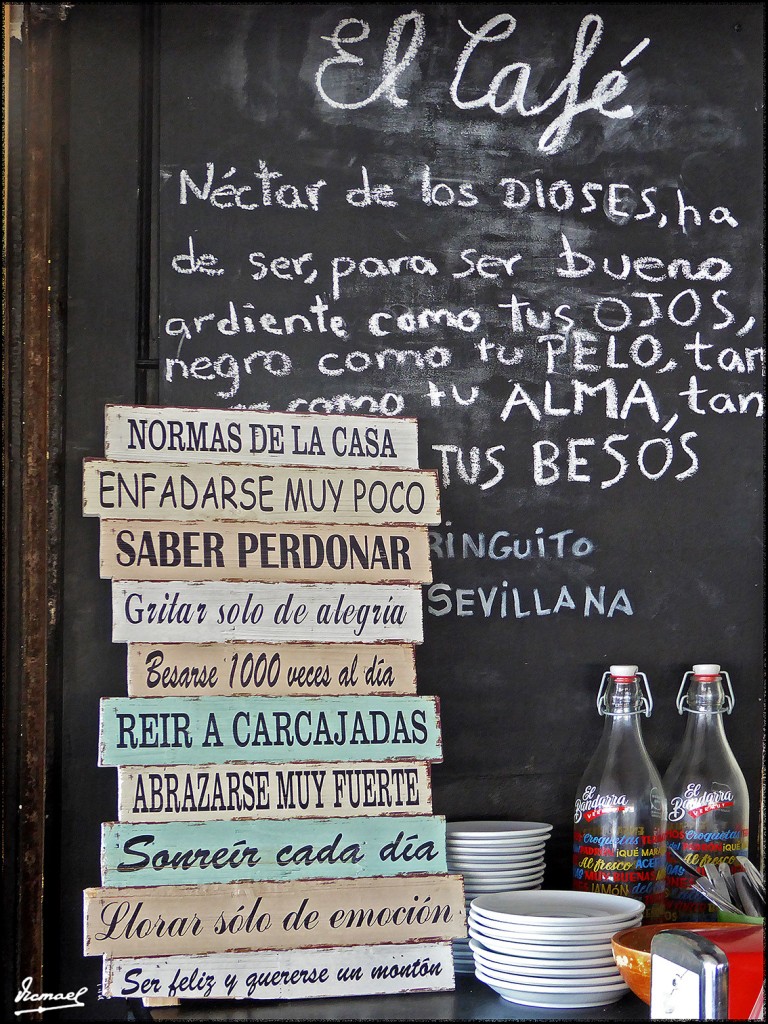 El Café
Néctar de los DIOSES, ha
de ser, para ser bueno
ardiente como tus OJOS,
negro como tu PELO, tan
como tu ALMA, tan
TUS BESÓS
RINGUITO
SEVILLANA
NORMAS DE LA CASA
ENFADARSE MUY POCO
SABER PERDONAR
Gritar solo de alegría
Besarse 1000 veces al día
REIR A CARCAJADAS
ABRAZARSE MUY FUERTE
Sonreír cada día
Llorar sólo de emoción
Ser feliz y quererse un montón
El
Bandarra
VERMUT
Croquetas
¡QUÉ
Al fresco
MUY BUENAS
JAMÓN
El
Bandarra
VERMUT
Croquetas
¡QUÉ
Al fresco